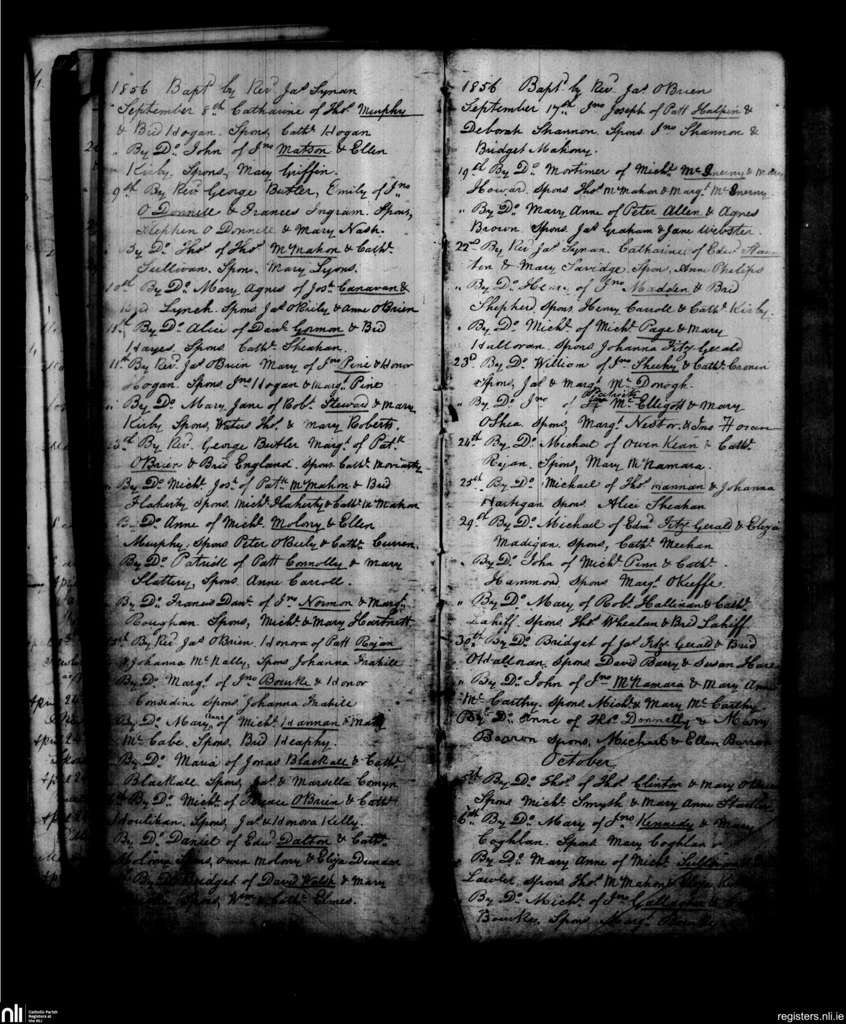 1856 Bapt. by Revd. Jas. Synan
" September 8th Catharine of Thos. Murphy
& Brd Hogan. Spons, Cathe. Hogan
" By Do. John of Jno Matson & Ellen
Kirby, Spons, Mary Griffin.
9th By Revd. George Butler, Emily of Jno
O Donnell & Frances Ingram. Spons,
Stephen O Donnell & Mary Nash.
By Do. Thos. of Thos. McMahon & Cathe.
Sullivan. Spons. Mary Lyons.
10th By Do. Mary Agnes of Jos. Canavan &
Brd Lynch. Spons Jas O'Reily & Anne O'Brien
By Do. Alice of Danl. Gorman & Brd
Hayes. Spons Cathe. Sheahan.
11th By Revd. Jas O'Brien Mary of Jno Pine & Honor
Hogan. Spons Jno Hogan & Margt. Pine
" By Do. Mary Jane of Robt. Steward & Mary
Kirby Spons, Thos. & Mary Roberts.
By Revd. George Butler Margt. of Patk
O'Brien & Brd England. Spons Cathe. Moriarty
By Do. Michl. Jos. of Patk McMahon & Brd
Flaherty Spons Michl. Flaherty & Cathe. McMahon
By Do. Anne of Michl. Molony & Ellen
Murphy, Spons Peter O'Reily & Cathe. Curren.
By Do. Patrick of Patt Connolley & Mary
Slattery, Spons. Anne Carroll.
By Do. Francis Danl. of Jno Normon & Margt.
Roughan Spons, Michl. & Mary Hartnett
By Revd. Jas O'Brien, Honora of Patt Ryan
& Johanna McNally, Spons Johanna
By Do. Margt. of Jno Bourke & Honor
Considine Spons Johanna
By Do. Mary Anne of Michl. Hannan & Mary
McCabe. Spons. Brd Heaphy.
By Do. Maria of Jonas Blackall & Cathe.
Blackall Spons, Jos. & Marsella Comyn
By Do. Michl. of O'Brien & Cathe.
Houlihan. Spons, Jas. & Honora Kelly.
By Do. Daniel of Edwd. Dalton & Cathe.
Molony Spons, Owen Molony & Eliza
By Do. Bridget of David Walsh & Mary
Spons, Wm & Cathe. Elmes.
1856 Bapt. by Revd. Jas O'Brien
September 17th Jno Joseph of Patt Halpin &
Deborah Shannon. Spons Jno Shannon &
Bridget Mahony.
19th By Do. Mortimer of Michl. McInerny & Mary
Howard. Spons Thos. McMahon & Margt. McInerny.
" By Do. Mary Anne of Peter Allen & Agnes
Brown Spons. Jas. Graham & Jane Webster.
22d By Revd. Jas. Synan. Catharine of Edwd.
& Mary Savidge. Spon. Anne Phelips
" By Do. Henry of Jno Madden & Brd
Shepherd Spons Henry Carroll & Cathe. Kirby.
" By Do. Michl. of Michl. Page & Mary
Halloran. Spons Johanna Fitz Gerald
23d By Do. William of Jno Sheehy & Cathe. Cronin
Spons, Jas & Margt. McDonogh.
" By Do. Jno of McElligott & Mary
OShea. Spons, Margt. Nestor. & Jno Horan
24th By Do. Michael of Owen Kean & Cathe.
Ryan. Spons, Mary McNamara.
25th By Do. Michael of Thos. Hannan & Johanna
Hartigan Spons Alice Sheahan
29th By Do. Michael of Edwd. Fitz Gerald & Eliza
Madigan. Spons, Cathe. Meehan
" By Do. John of Michl. Penn & Cathe.
Hammond Spons Margt. OKeeffe
" By Do. Mary of Robt. Hallinan & Cathe.
Lahiff. Spons Thos. Whealan & Brd Lahiff
30th By Do. Bridget of Jas. Fitz Gerald & Brd
OHalloran. Spons David Barry & Susan Hare
" By Do. John of Jno McNamara & Mary Anne
McCarthy. Spons, Michl. & Mary McCarthy
By Do. Anne of Thos. Donnelly & Mary
Barron Spons, Michael & Ellen Barron
October
5th By Do. Thos. of Thos. Clinton & Mary
Spons Michl. Smyth & Mary Anne
6th By Do. Mary of Jno Kennedy & Mary
Coghlan. Spons Mary Coghlan
" By Do. Mary Anne of Michl. Sullivan
Lawler. Spons Thos. McMahon &
By Do. Michl. of Jno Gallagher &
Bourke. Spons. Margt.
April 24
nli
Catholic Parish
Registers at
the NLI
registers.nli.ie